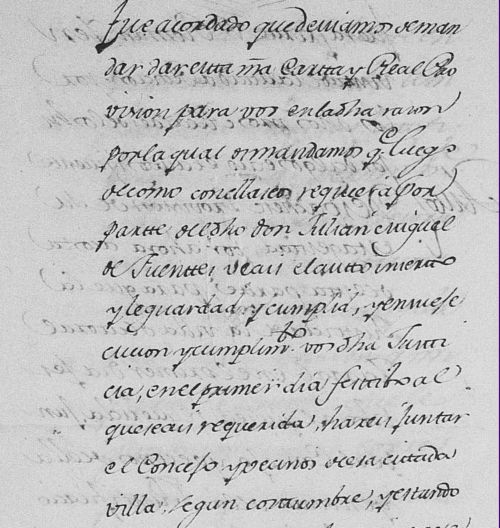 fue acordado que deviamos de man
dar dar esta ñra Cartta y Real Pro
vision para vos en la dha razon
por la qual os mandamos q.e luego
de como con ella seais requerida por
partte de el dho don Julian Miguel
de Fuenttes veais el autto inserto
y le guardad y cumplid, y en su ese
cucion y cumplim.to vos dha Justi
cia, en el primer dia festibo al
que seais requerida, hareis juntar
el Concejo y vecinos de esa cittada
villa, segun costumbre, y estando